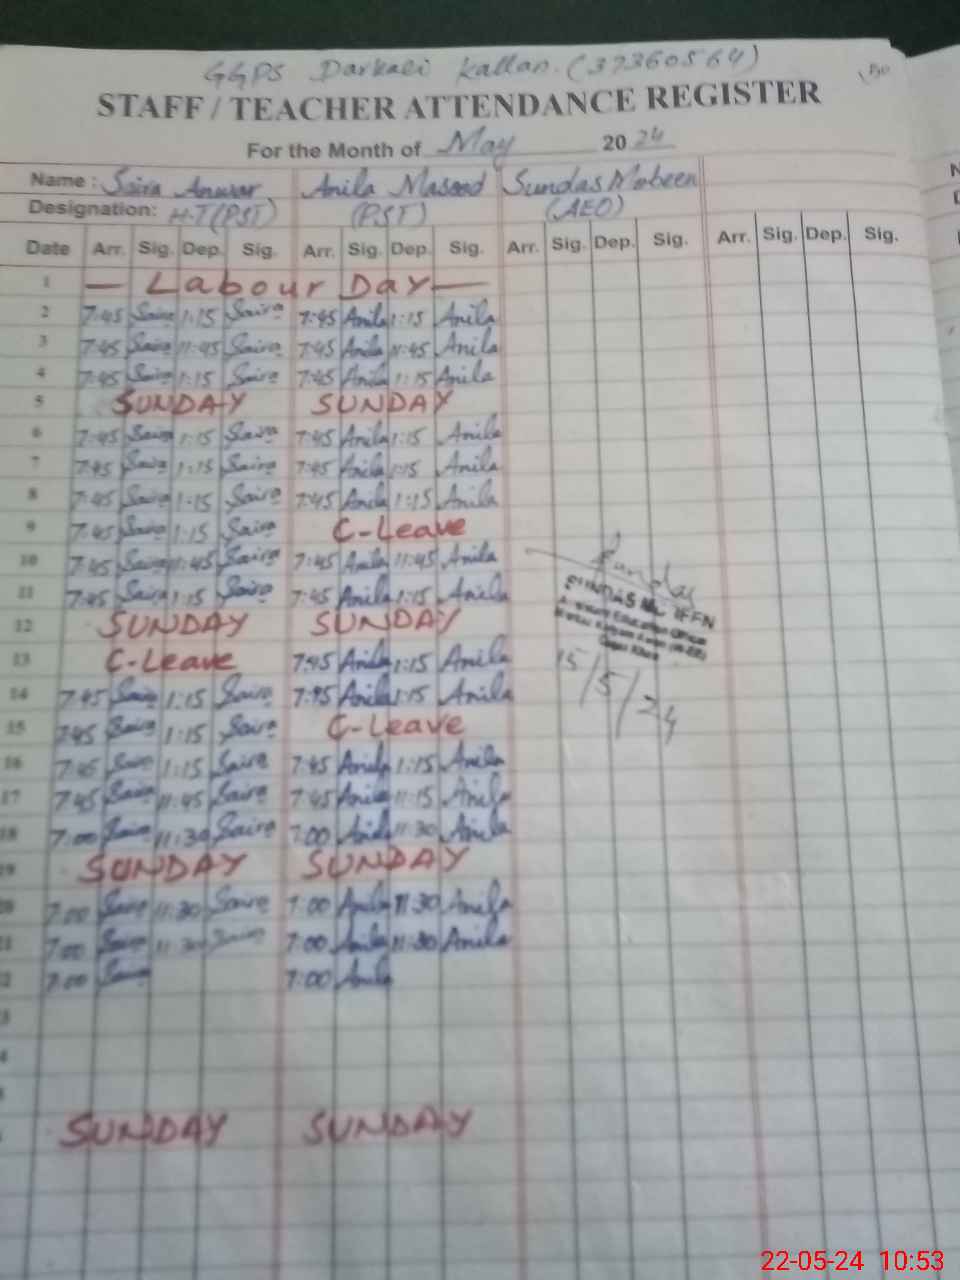 GGPS Darkali Kallan. (37360564)
STAFF / TEACHER ATTENDANCE REGISTER
For the Month of May 2024
Name : Saira Anwar Anila Masood Sundas Mobeen
Designation: H.T (PST) (PST) (AEO)
Date Arr. Sig. Dep. Sig. Arr. Sig. Dep. Sig. Arr. Sig. Dep. Sig. Arr. Sig. Dep. Sig.
1 — Labour Day —
2 7:45 Saira 1:15 Saira 7:45 Anila 1:15 Anila
3 7:45 Saira 11:45 Saira 7:45 Anila 11:45 Anila
4 7:45 Saira 1:15 Saira 7:45 Anila 1:15 Anila
5 SUNDAY SUNDAY
6 7:45 Saira 1:15 Saira 7:45 Anila 1:15 Anila
7 7:45 Saira 1:15 Saira 7:45 Anila 1:15 Anila
8 7:45 Saira 1:15 Saira 7:45 Anila 1:15 Anila
9 7:45 Saira 1:15 Saira C-Leave
10 7:45 Saira 11:45 Saira 7:45 Anila 11:45 Anila
11 7:45 Saira 1:15 Saira 7:45 Anila 1:15 Anila
12 SUNDAY SUNDAY
13 C-Leave 7:45 Anila 1:15 Anila
14 7:45 Saira 1:15 Saira 7:45 Anila 1:15 Anila
15 7:45 Saira 1:15 Saira C-Leave
16 7:45 Saira 1:15 Saira 7:45 Anila 1:15 Anila
17 7:45 Saira 11:45 Saira 7:45 Anila 11:15 Anila
18 7:00 Saira 11:30 Saira 7:00 Anila 11:30 Anila
19 SUNDAY SUNDAY
20 7:00 Saira 11:30 Saira 7:00 Anila 11:30 Anila
21 7:00 Saira 11:30 Saira 7:00 Anila 11:30 Anila
22 7:00 Saira 7:00 Anila
SUNDAY SUNDAY
Sundas
SUNDAS
Education Officer
15/5/24
22-05-24 10:53